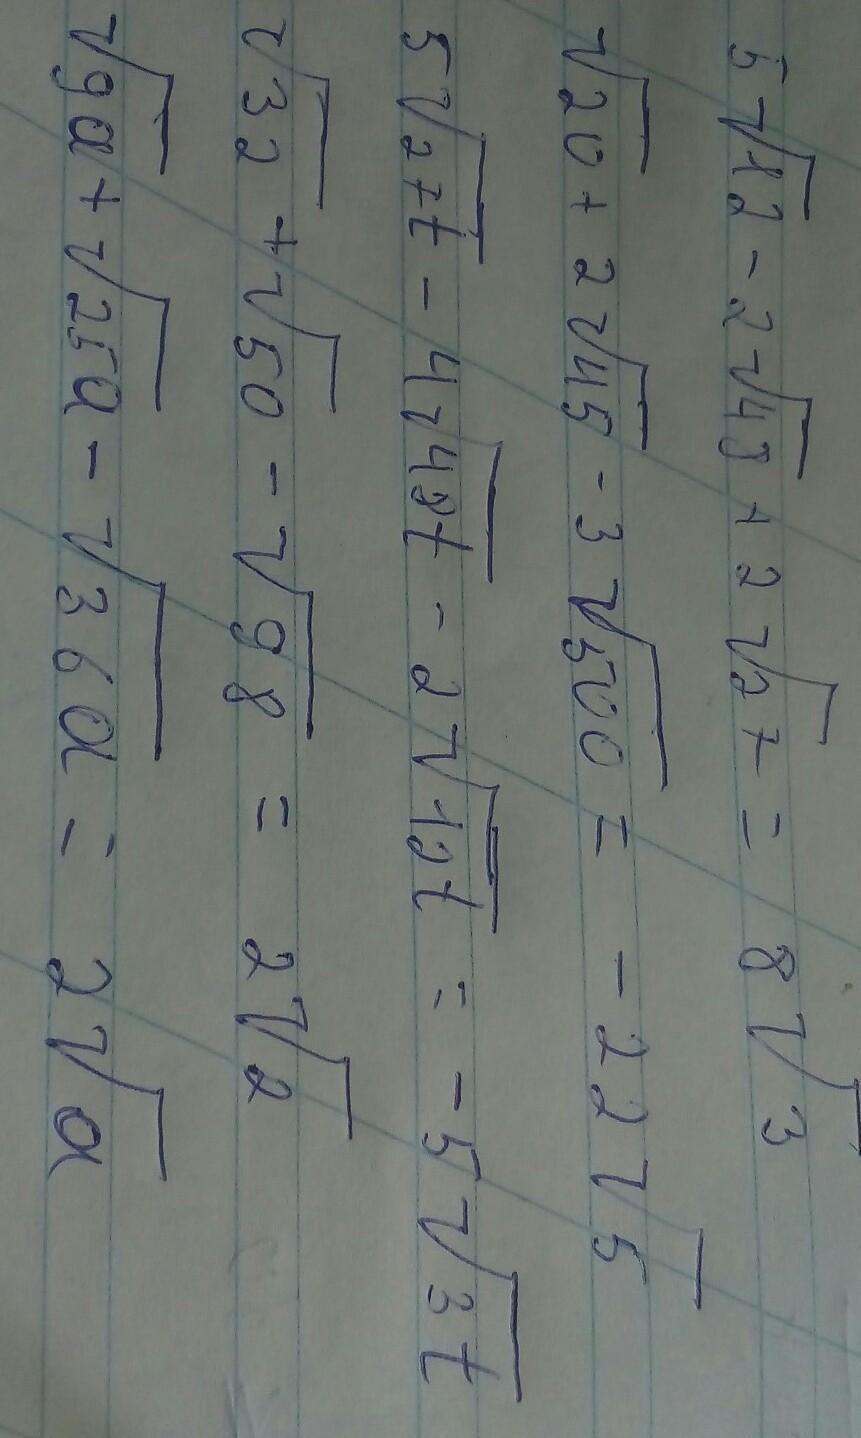 5√12 - 2√48 + 2√27 = 8√3
√20 + 2√45 - 3√500 = -22√5
5√27t - 4√48t - 2√12t = -5√3t
√32 + √50 - √98 = 2√2
√9a + √25a - √36a = 2√a